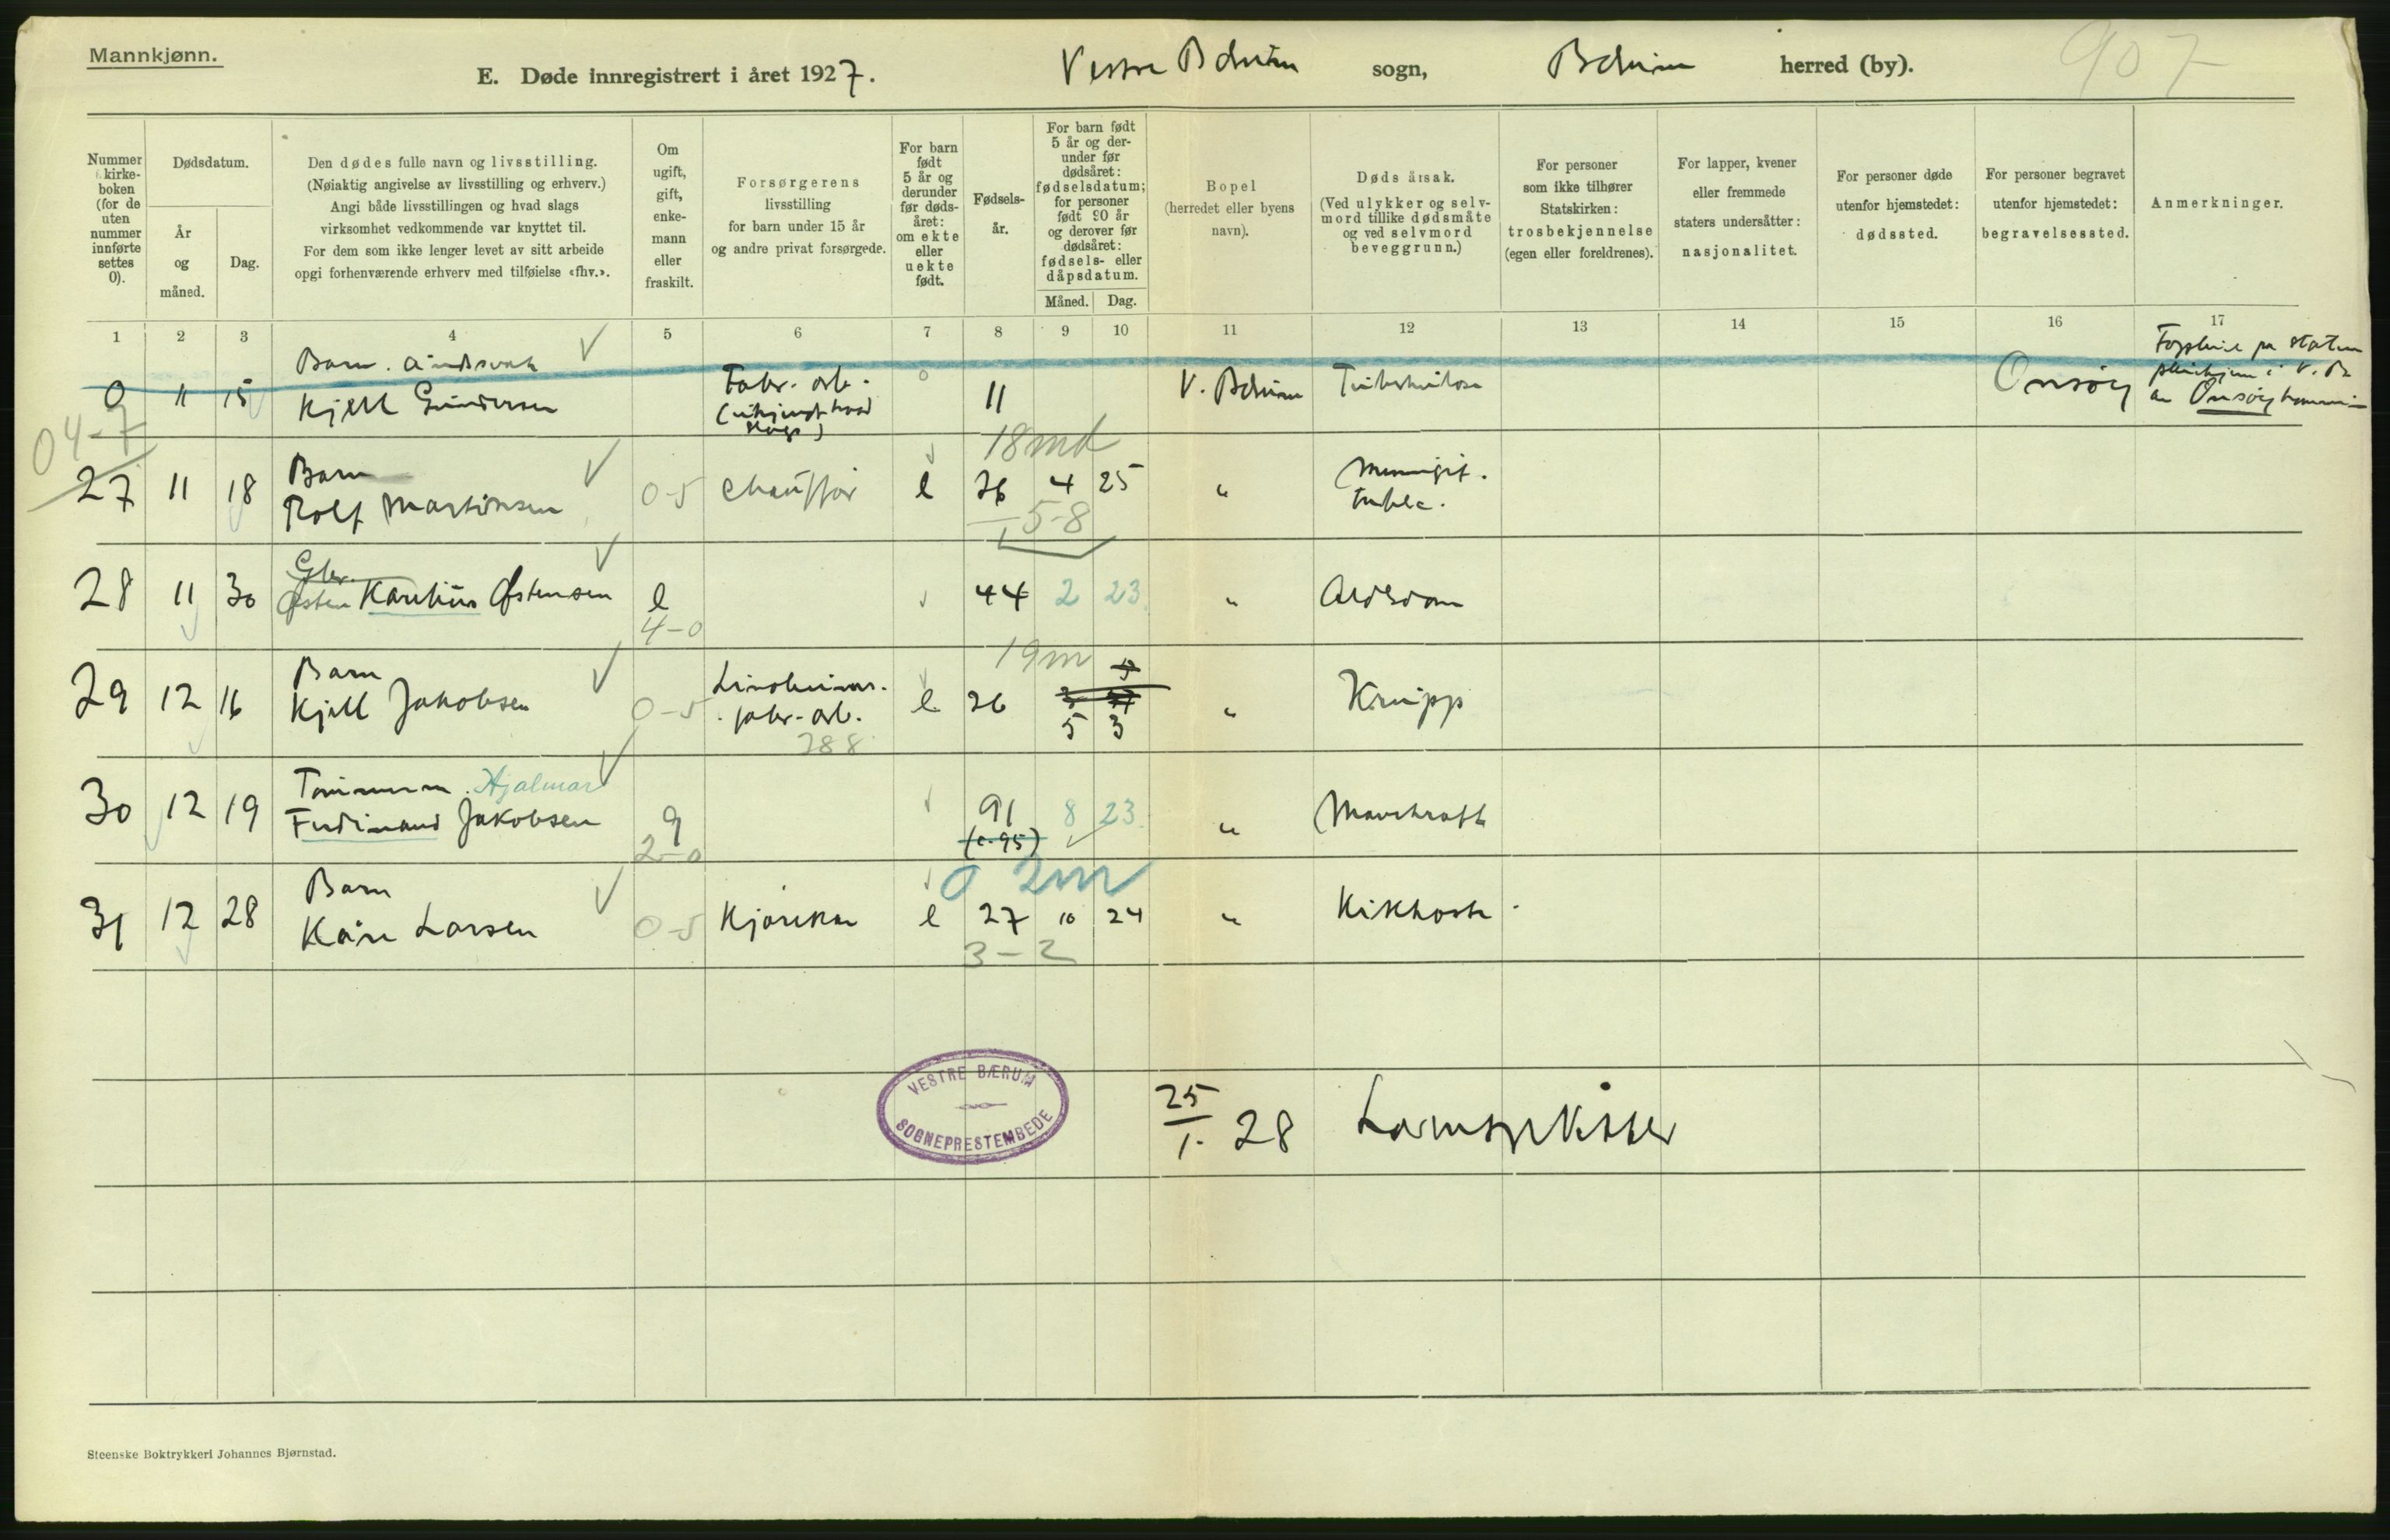 Mannkjønn.
E. Døde innregistrert i året 1927. Vestre Bærum sogn, Bærum herred (by). 907
Nummer i kirkeboken (for de uten nummer innførte settes 0).
Dødsdatum.
År og måned.
Dag.
Den dødes fulle navn og livsstilling.
(Nøiaktig angivelse av livsstilling og erhverv.)
Angi både livsstillingen og hvad slags
virksomhet vedkommende var knyttet til.
For dem som ikke lenger levet av sitt arbeide
opgi forhenværende erhverv med tilføielse «fhv.».
Om ugift, gift, enkemann eller fraskilt.
Forsørgerens
livsstilling
for barn under 15 år
og andre privat forsørgede.
For barn født 5 år og derunder før dødsåret: om ekte eller uekte født.
Fødselsår.
For barn født 5 år og derunder før dødsåret: fødselsdatum; for personer født 90 år og derover før dødsåret: fødsels- eller dåpsdatum.
Måned. Dag.
Bopel
(herredet eller byens navn).
Døds årsak.
(Ved ulykker og selvmord tillike dødsmåte og ved selvmord beveggrunn.)
For personer
som ikke tilhører
Statskirken:
trosbekjennelse
(egen eller foreldrenes).
For lapper, kvener
eller fremmede
staters undersåtter:
nasjonalitet.
For personer døde
utenfor hjemstedet:
dødssted.
For personer begravet
utenfor hjemstedet:
begravelsessted.
Anmerkninger.
1 2 3 4 5 6 7 8 9 10 11 12 13 14 15 16 17
0 11 15 Barn. åndssvak
Kjell Gundersen Fabr. arb. (ukjendt hvad slags) 0 11 V. Bærum Tuberkulose Onsøy
på statens pleiehjem i V. B. av Onsøy
04-7
27 11 18 Barn
Rolf Martinsen 0-5 Chauffør e 26 4 25 " Meningit. tuberc.
18 md
5-8
28 11 30 Gbr.
Østen Karelius Østensen e 4-0 44 2 23 " Alderdom
29 12 16 Barn
Kjell Jakobsen 0-5 fabr. arb. 288 e 26 5 3 " Krupp
19 m
30 12 19 Tømmerm. Hjalmar
Ferdinand Jakobsen g 2-0 91 (c. 95) 8 23 " Mavekræft
0 2m
31 12 28 Barn
Kåre Larsen 0-5 Kjørekar e 27 10 24 " Kikhoste.
3-2
VESTRE BÆRUM
SOGNEPRESTEMBEDE
25/1. 28
Steenske Boktrykkeri Johannes Bjørnstad.